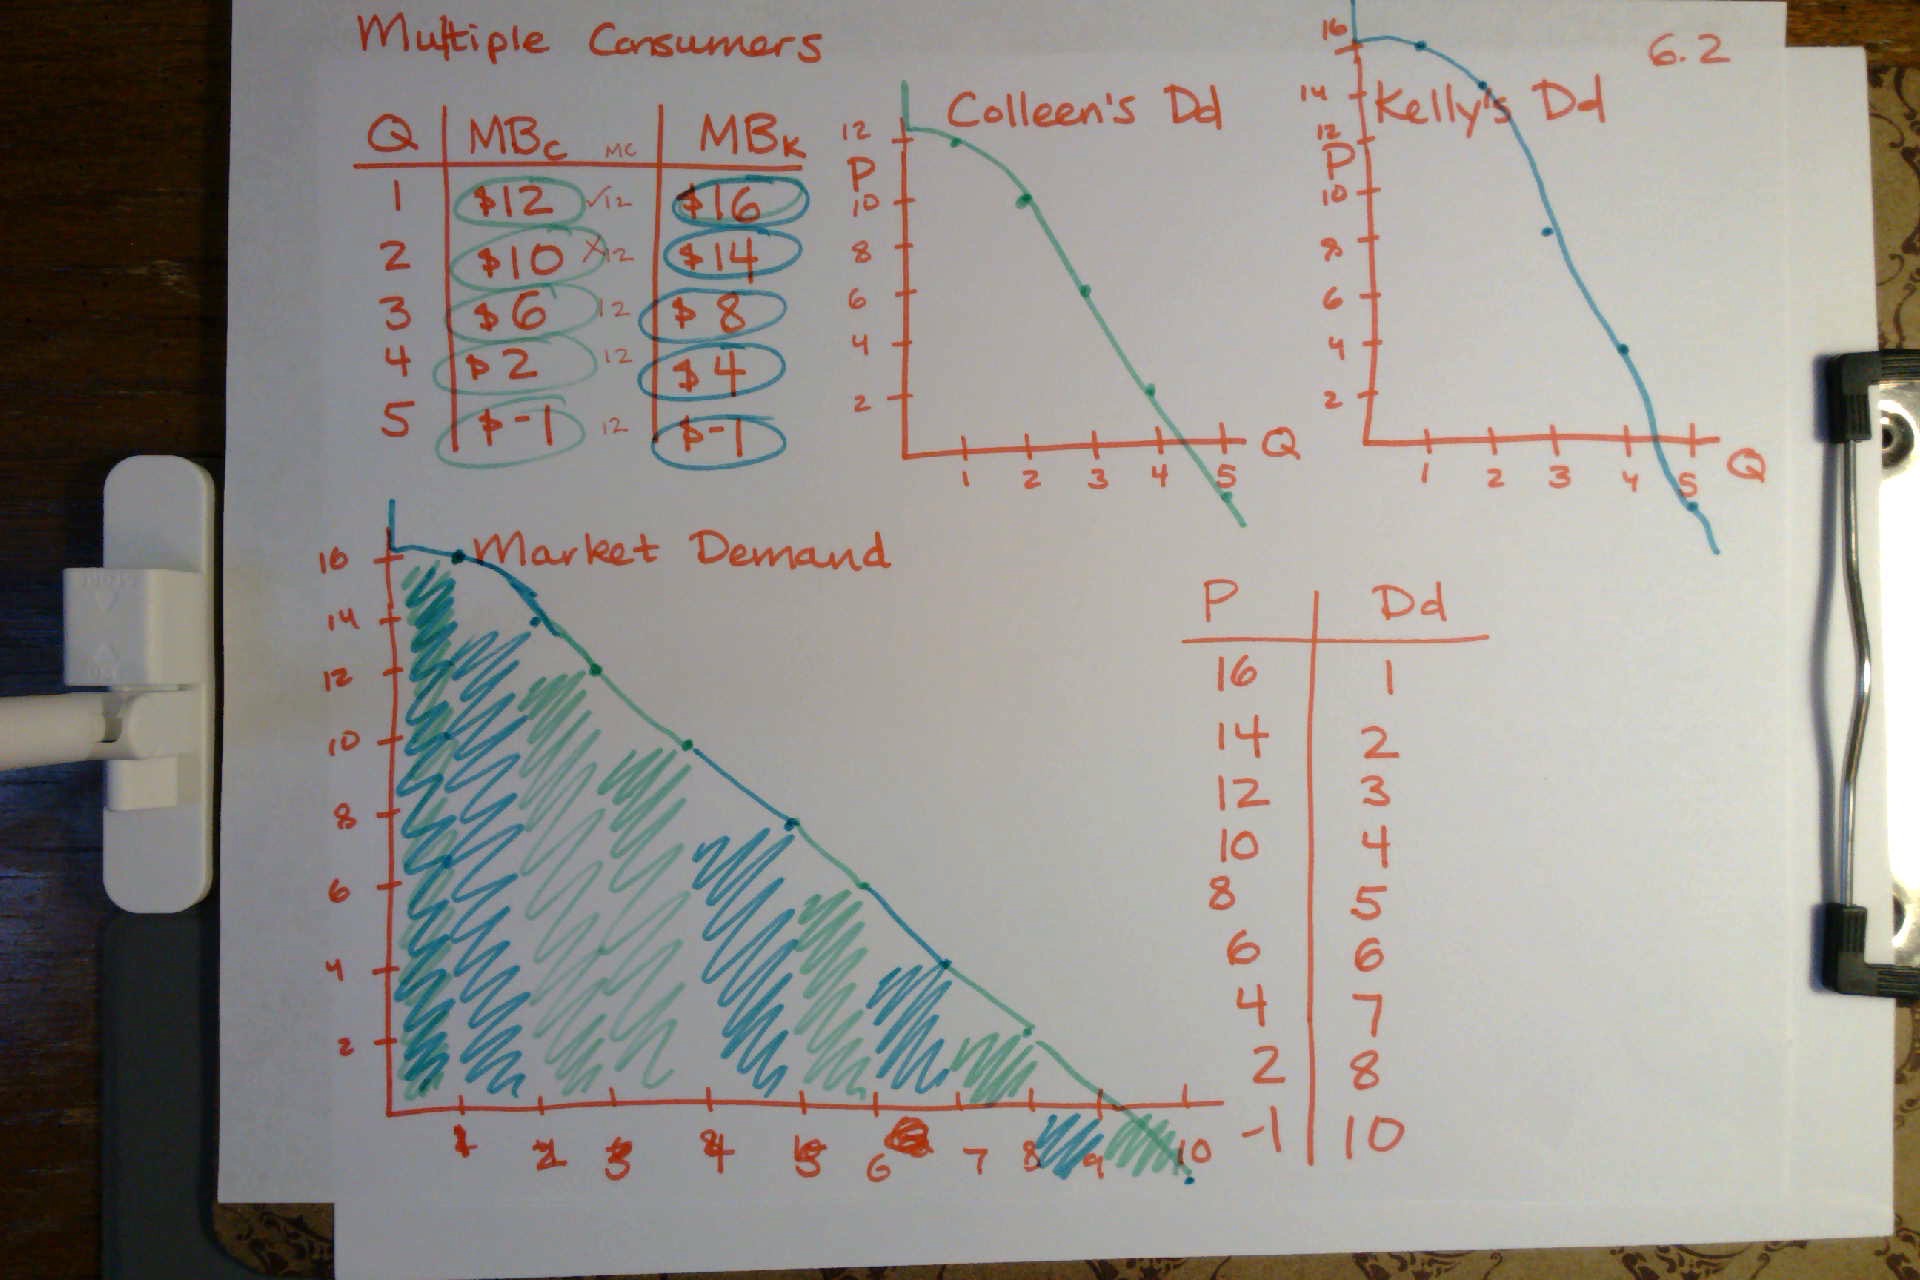 Multiple Consumers
6.2
Q MBc MC MBK
1 $12 ✓12 $16
2 $10 X12 $14
3 $6 12 $8
4 $2 12 $4
5 $-1 12 $-1
Colleen's Dd
P
12
10
8
6
4
2
1 2 3 4 5 Q
Kelly's Dd
P
16
14
12
10
8
6
4
2
1 2 3 4 5 Q
Market Demand
16
14
12
10
8
6
4
2
1 2 3 4 5 6 7 8 9 10
P Dd
16 1
14 2
12 3
10 4
8 5
6 6
4 7
2 8
-1 10